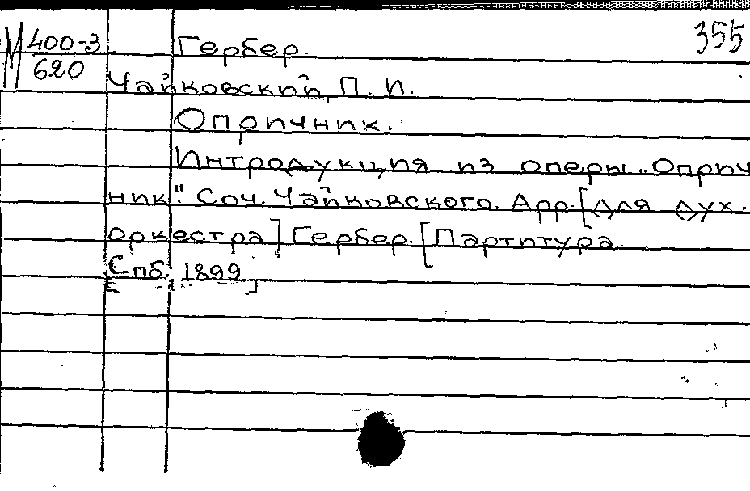 355
М 400-3
620
Гербер.
Чайковский, П. И.
Опричник.
Интродукция из оперы „Оприч
ник". Соч. Чайковского. Арр. [для дух.
оркестра] Гербер. [Партитура
Спб. 1899]